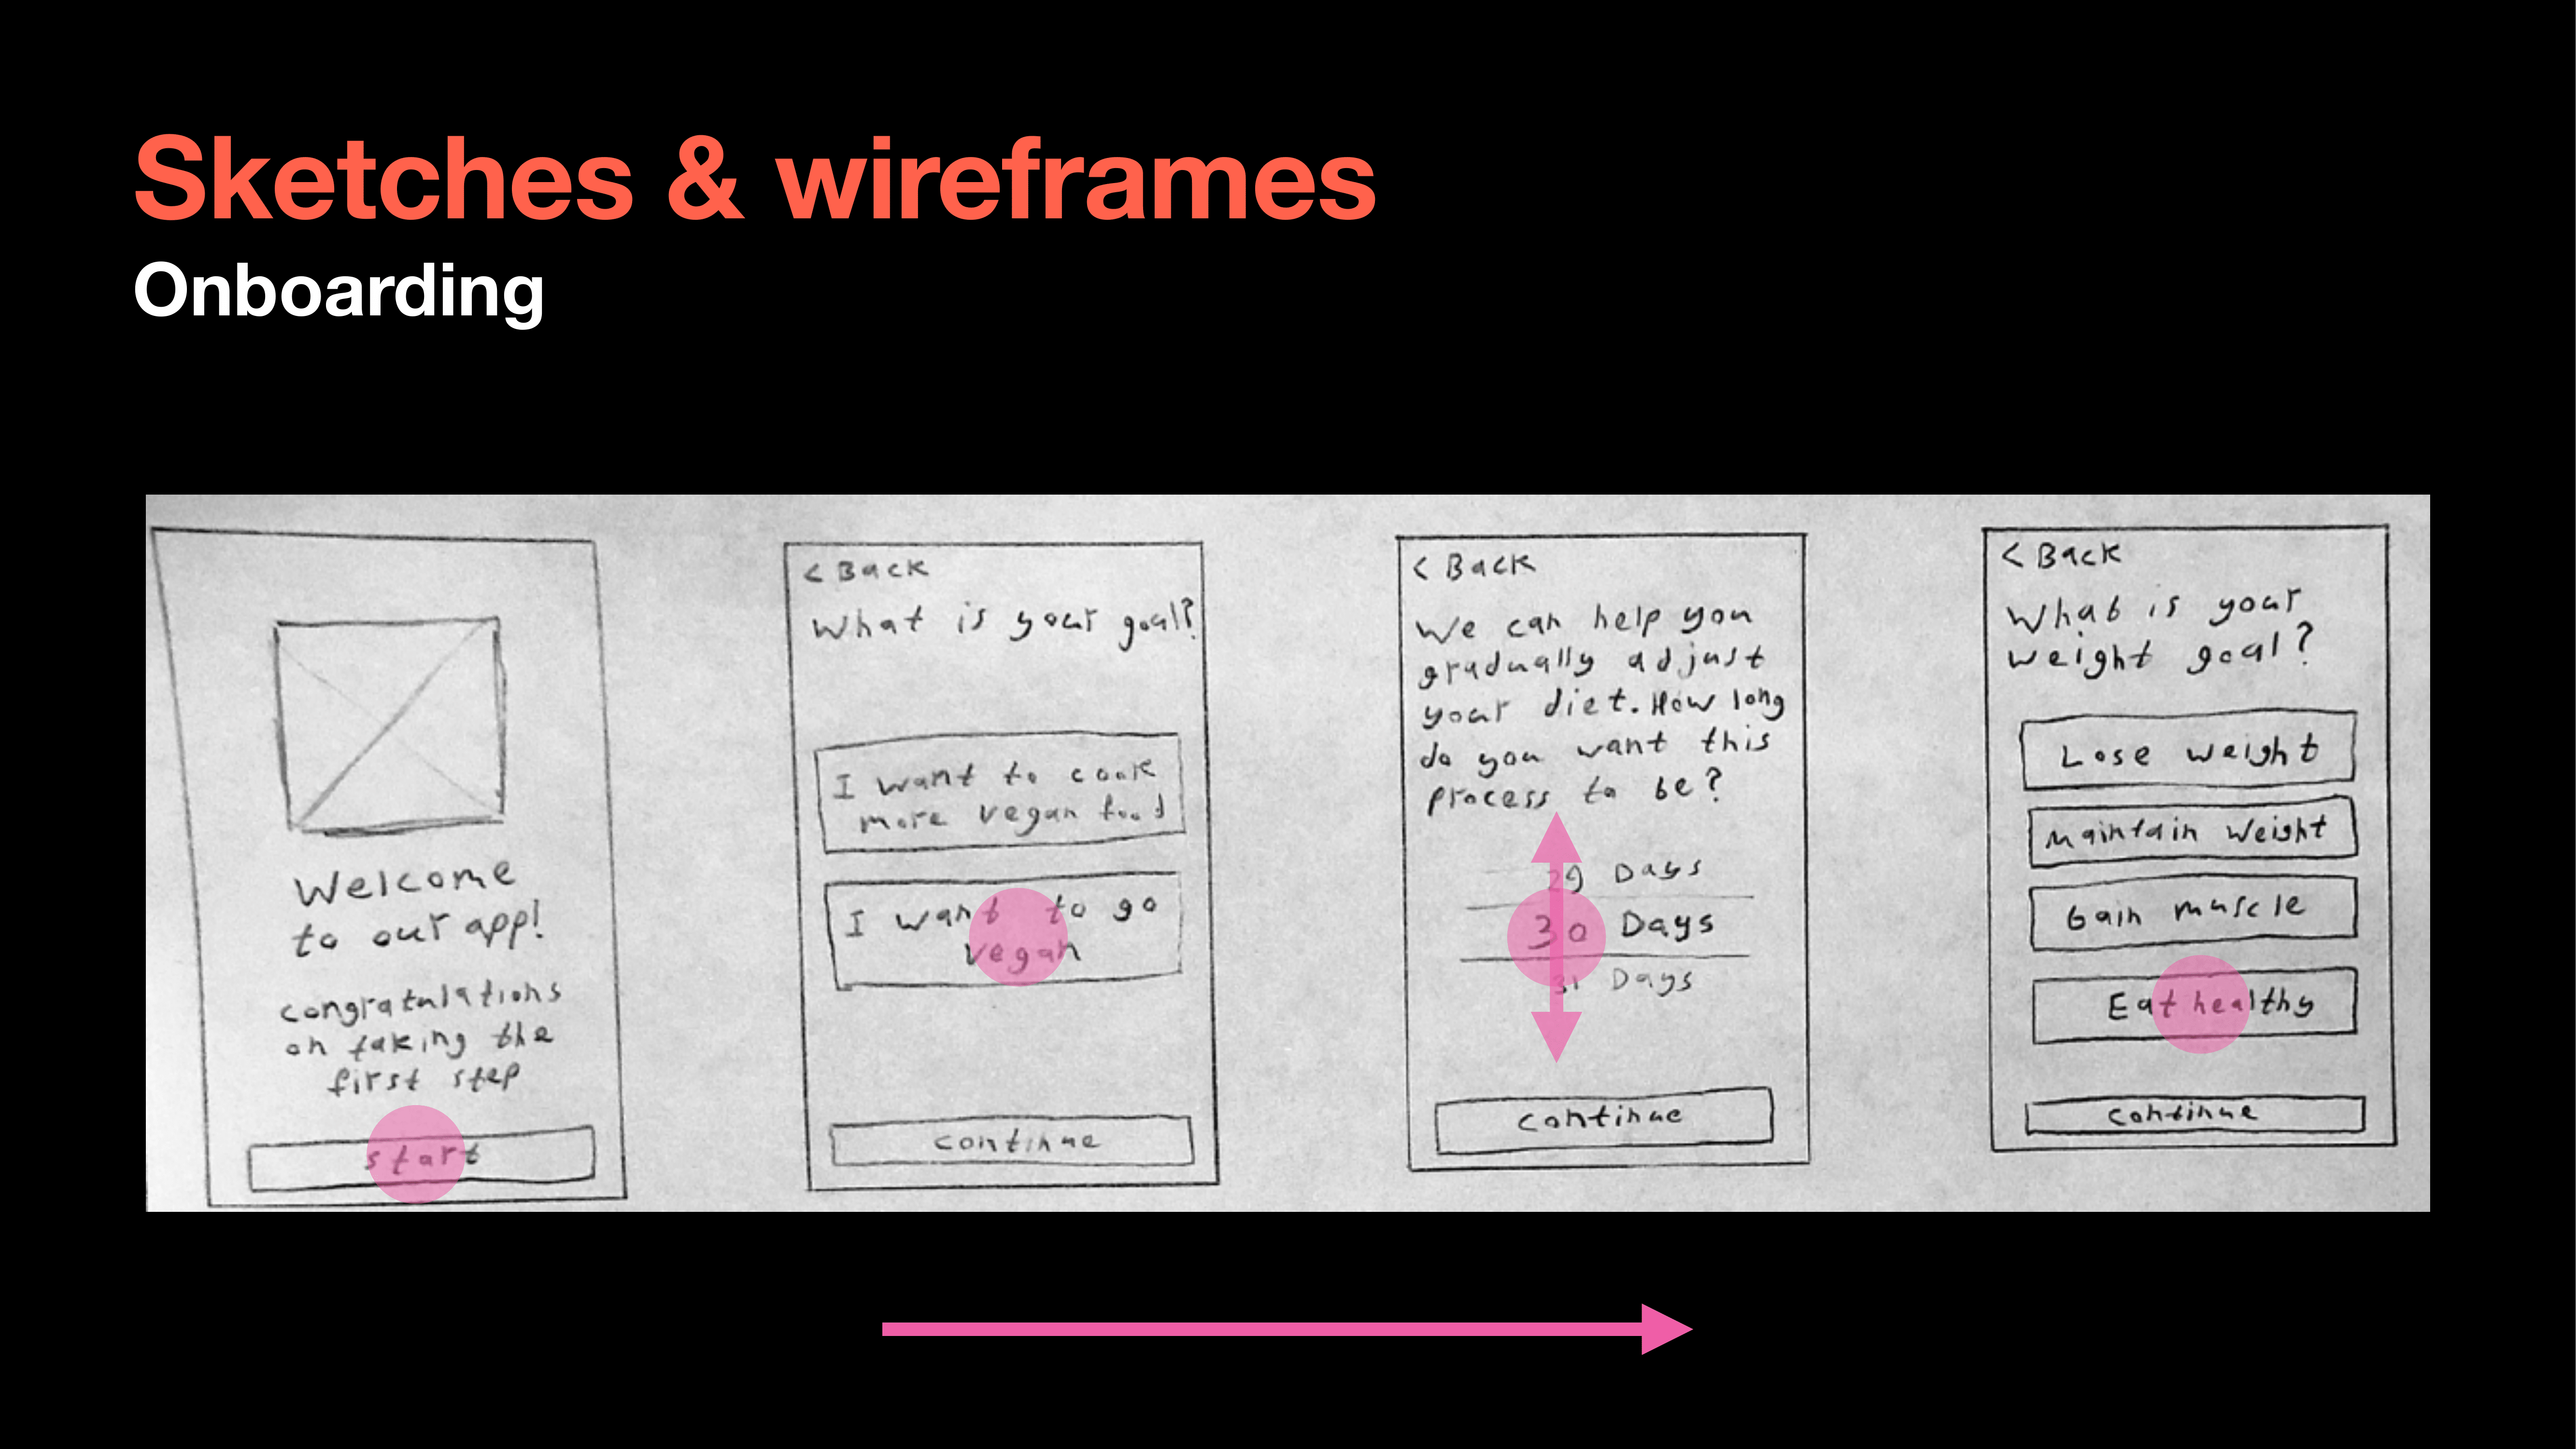 Sketches & wireframes
Onboarding
Welcome
to our app!
congratulations
on taking the
first step
start
< Back
What is your goal?
I want to cook
more vegan food
I want to go
vegan
continue
< Back
We can help you
gradually adjust
your diet. How long
do you want this
process to be?
29 Days
30 Days
31 Days
continue
< Back
What is your
weight goal?
Lose weight
Maintain Weight
Gain muscle
Eat healthy
continue